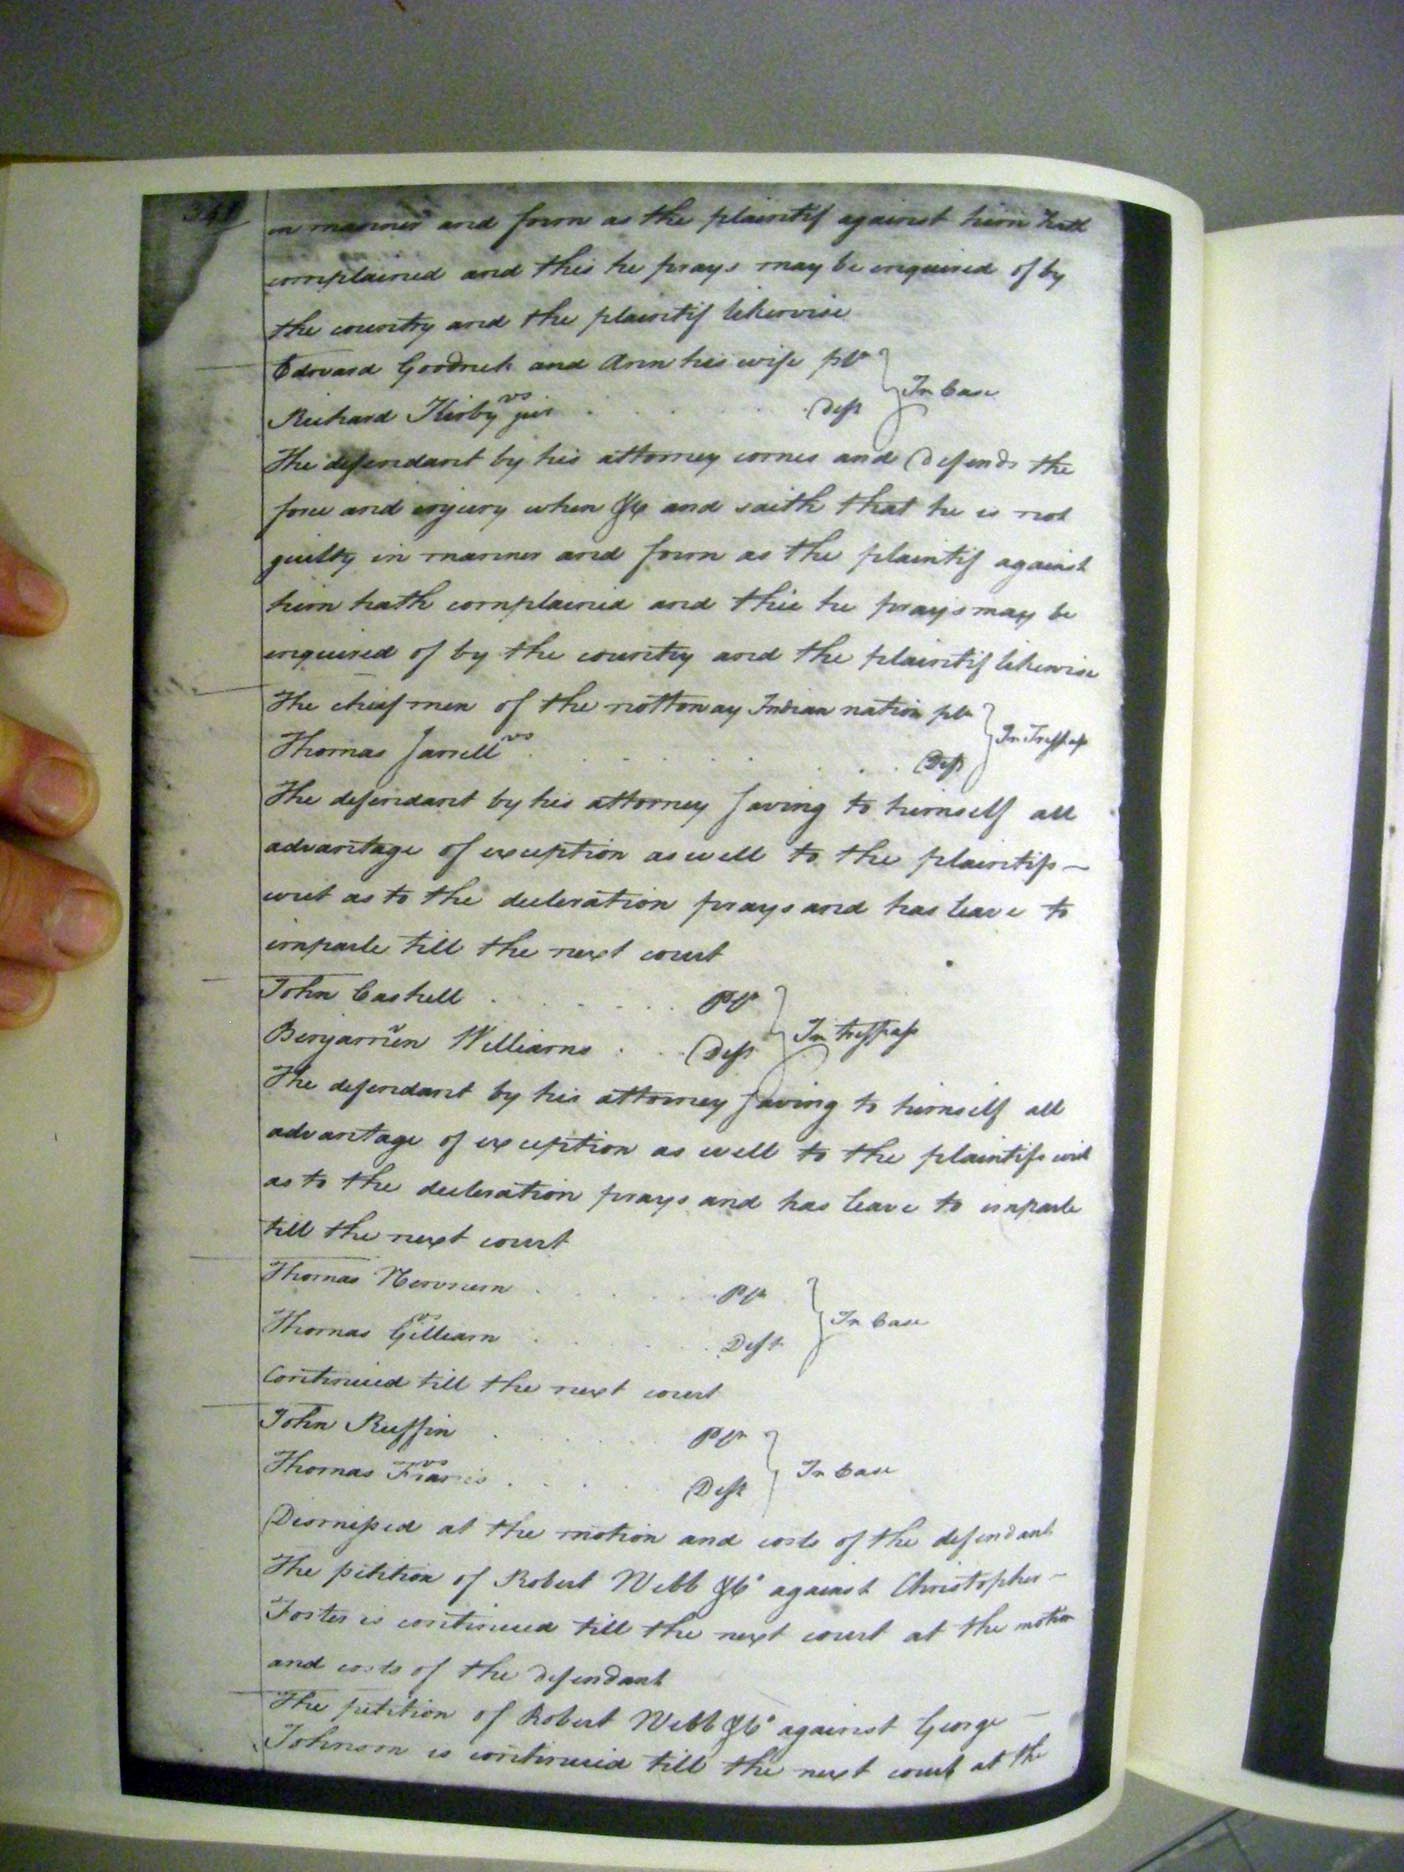 in manner and form as the plaintif against him hath
complained and this he prays may be enquired of by
the country and the plaintif likewise
Edward Goodrich and Ann his wife plt
vs
Richard Kirby junr . . . . . . Deft
In Case
The defendant by his attorney comes and Defends the
force and injury when &c and saith that he is not
guilty in manner and form as the plaintif against
him hath complained and this he prays may be
enquired of by the country and the plaintif likewise
The chief men of the nottoway Indian nation plt
vs
Thomas Jarrell . . . . . . . . Deft
In Tresspass
The defendant by his attorney saving to himself all
advantage of exception as well to the plaintifs —
writ as to the decleration prays and has leave to
imparle till the next court
John Caskell . . . . . . Plt
vs
Benjamin Williams . . . Deft
In tresspass
The defendant by his attorney saving to himself all
advantage of exception as well to the plaintifs writ
as to the decleration prays and has leave to imparle
till the next court
Thomas Newsum . . . . . Plt
vs
Thomas Gilliam . . . . . Deft
In Case
Continued till the next court
John Ruffin . . . . . Plt
vs
Thomas Francis . . . . . Deft
In Case
Dismissed at the motion and costs of the defendant
The petition of Robert Webb &Co against Christopher —
Foster is continued till the next court at the motion
and costs of the defendant
The petition of Robert Webb &Co against George —
Johnson is continued till the next court at the